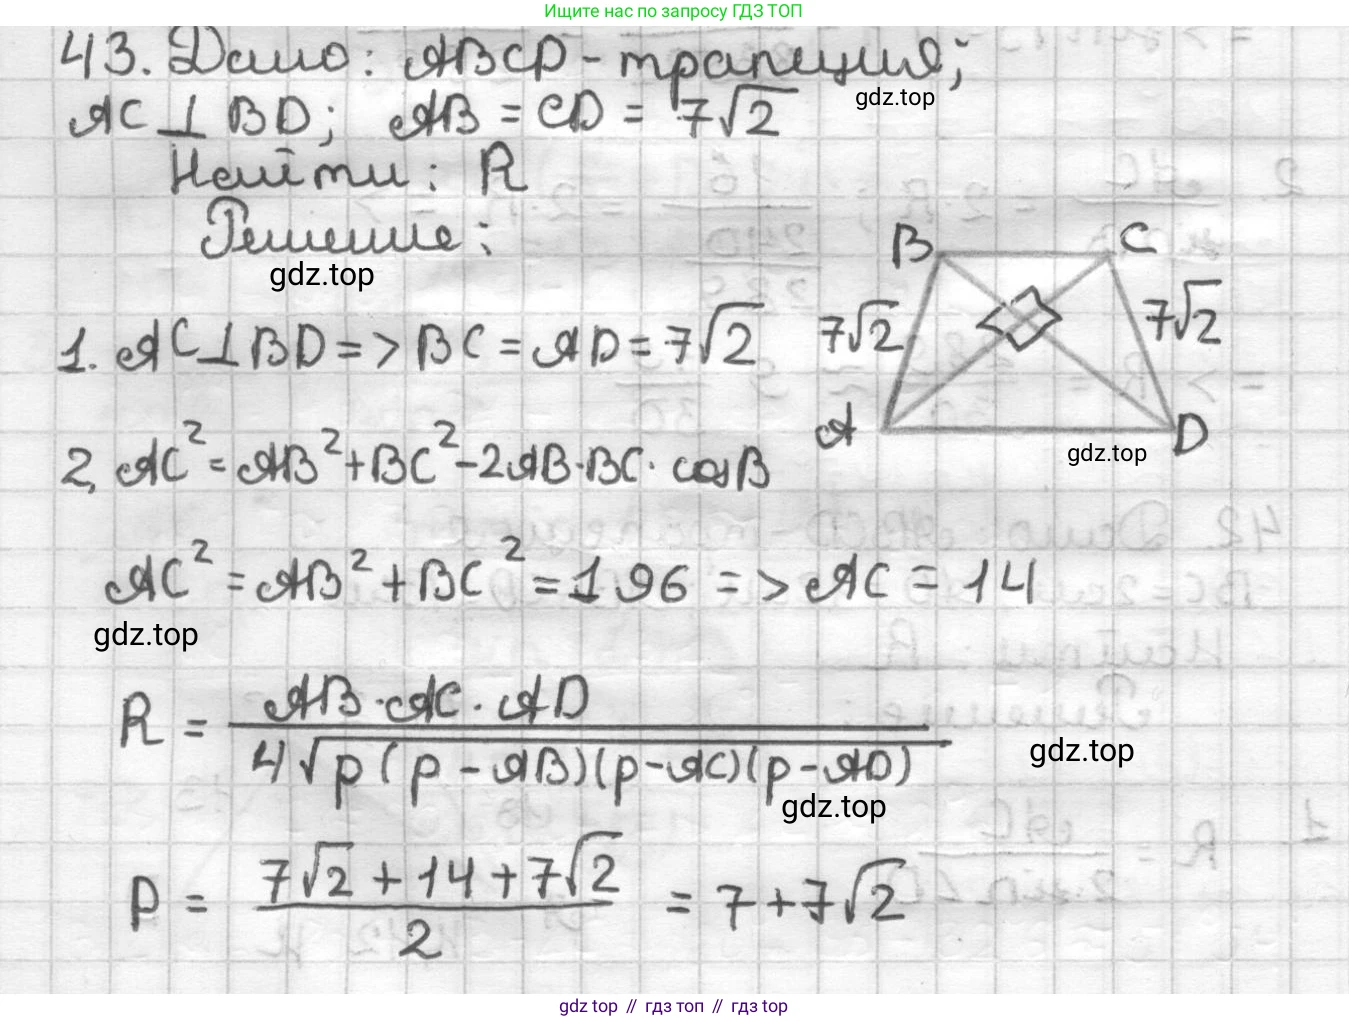 Ищите нас по запросу ГДЗ ТОП
43. Дано: ABCD - трапеция;
gdz.top
AC ⊥ BD; AB = CD = 7√2
Найти: R
Решение:
gdz.top
B C
7√2 7√2
A D
gdz.top
1. AC ⊥ BD => BC = AD = 7√2
2, AC² = AB² + BC² - 2AB·BC· cosB
AC² = AB² + BC² = 196 => AC = 14
gdz.top
R = AB·AC·AD / 4√p(p - AB)(p-AC)(p-AD)
gdz.top
gdz.top
P = 7√2 + 14 + 7√2 / 2 = 7 + 7√2
gdz top // гдз топ // гдз top